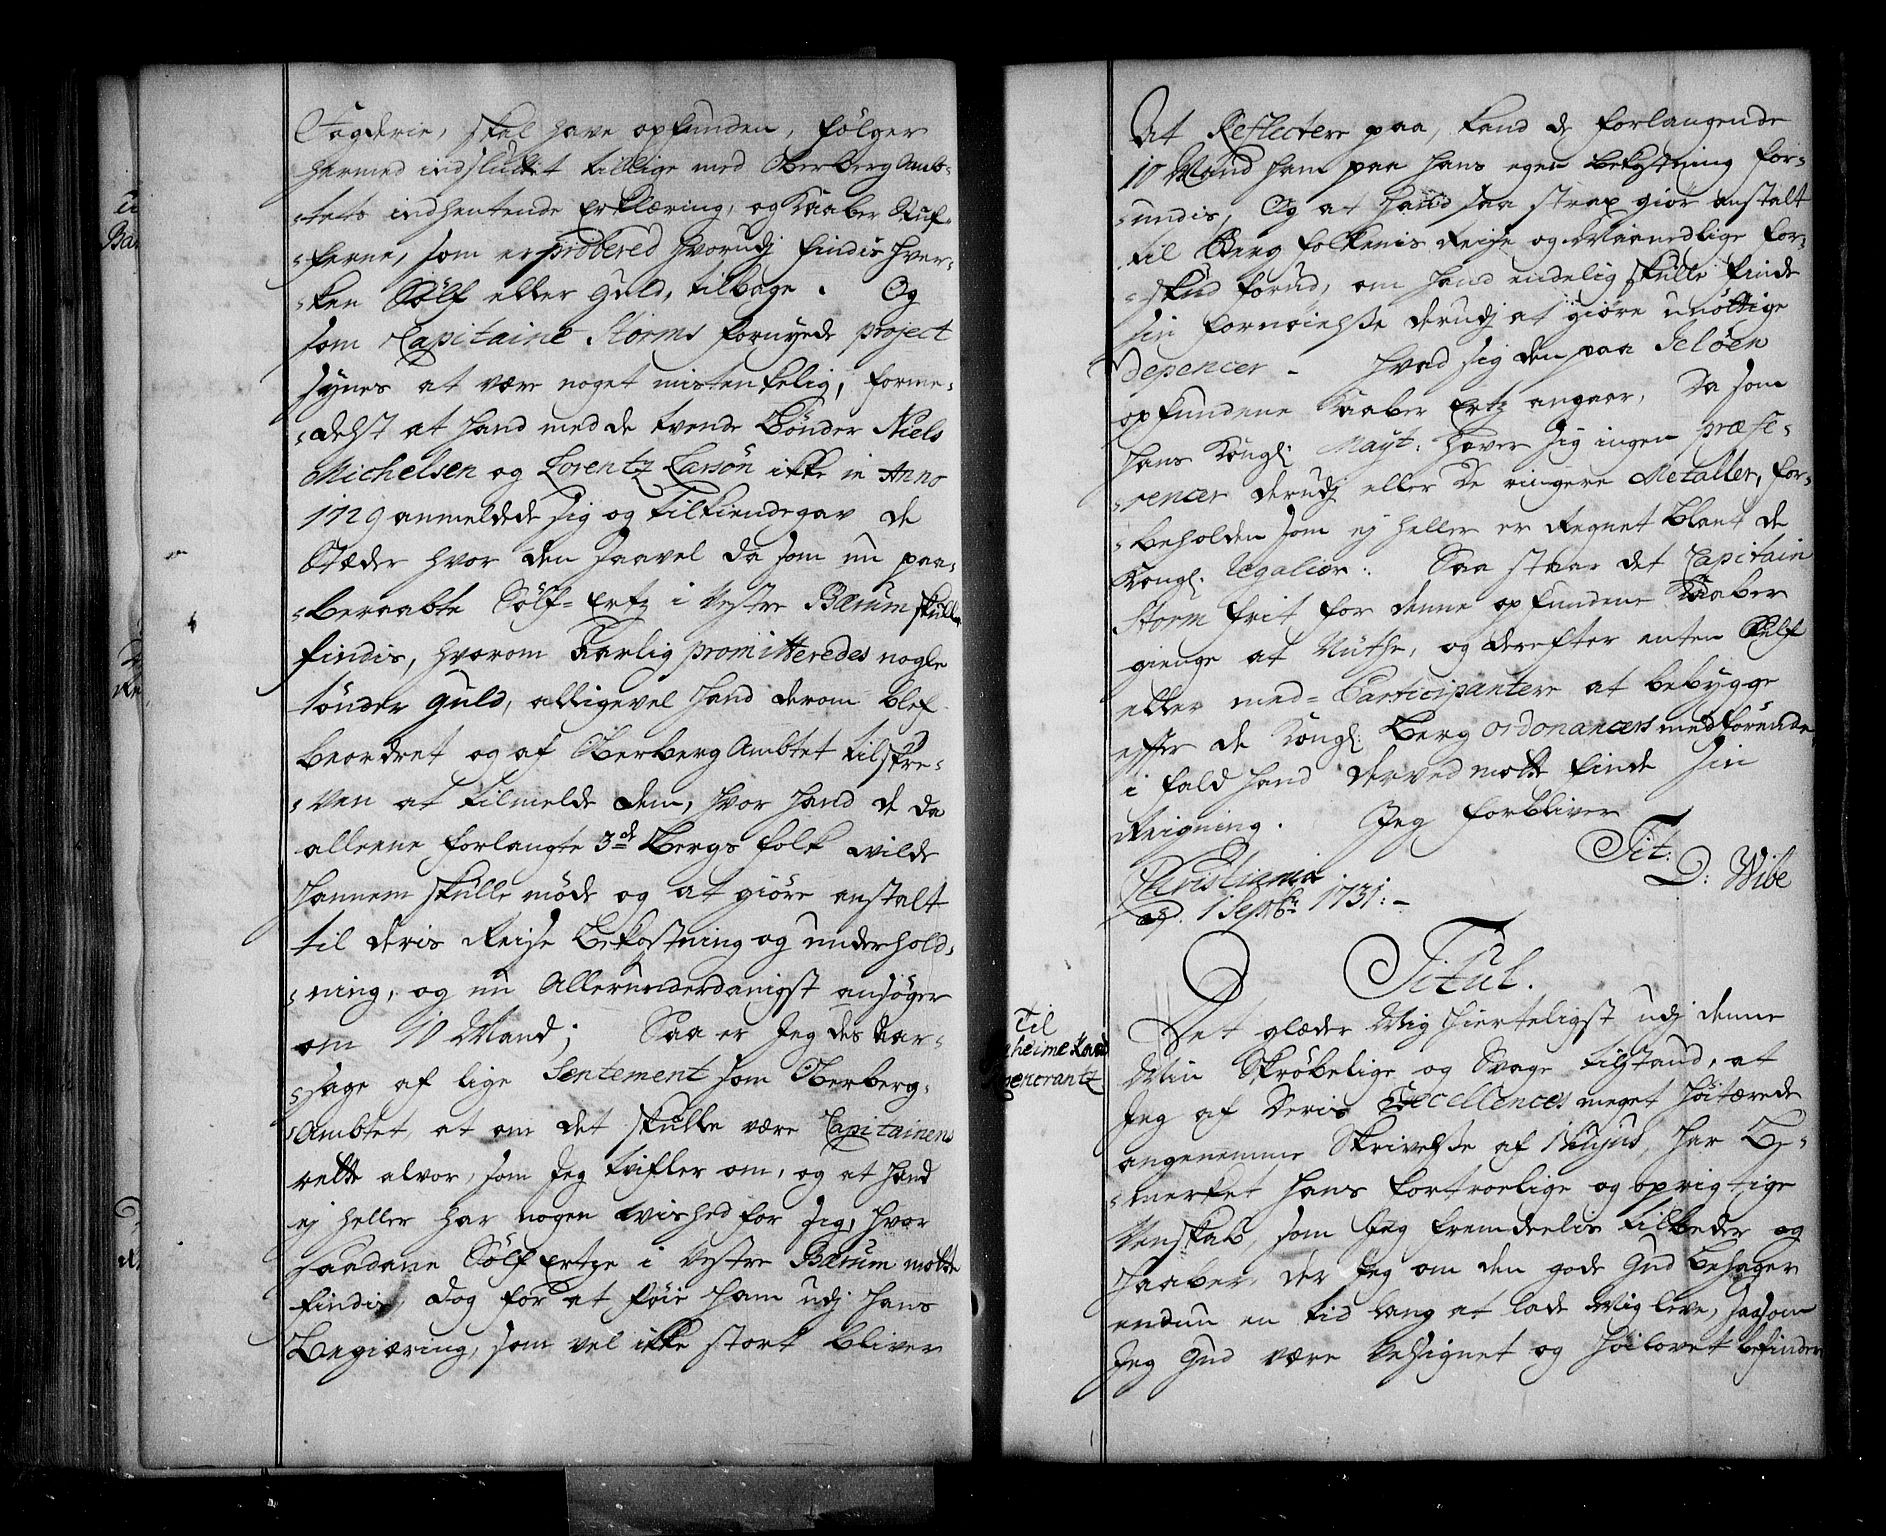 Fogderie, skal have opfunden, følger
hermed indsluttet tillige med OberbergAmb-
-tets indhentende Erklæring, og Kaaber Stuf-
-ferne, som er probered hvorudj findis hver-
-ken Sølf eller Guld, tilbage. Og
som Capitaine Storms fornyede project
synes at være noget mistenkelig, forme-
-delst at hand med de tvende Bønder Niels
Michelsen og Lorentz Larsøn ikke in Anno
1729 anmeldede sig og tilkiendegav de
Stæder hvor den saavel da som nu paa-
-beraabte Sølf-Ertz i Vestre Bærum skulle
findis, hvorom Aarlig promitteredes nogle
tønder Guld, alligevel hand derom blef
beordret og af OberbergAmbtet tilskre-
-ven at tilmelde dem, hvor hand de da
alleene forlangte 3de Bergs folk wilde
hannem skulle møde og at giøre anstalt
til deris Reise Bekostning og underhold-
-ning, og nu Allerunderdanigst ansøger
om 10 Mand; Saa er Jeg des Aar-
-sage af lige Sentement som Oberberg-
-Ambtet, at om det skulle være Capitainens
rette alvor, som Jeg tvifler om, og at hand
ej heller har nogen wished for sig, hvor
saadane Sølf Ertze i Vestre Bærum motte
findis, Dog for at føie ham udj hans
Begiæring, som vel ikke stort bliver
At Reflectere paa, kand de forlangende
10 Mand ham paa hans egen bekostning for-
-undis, Og at hand saa strax giør anstalt
til Berg folkenis Reise og Maanedlige for-
-skud forud, om hand endelig skulle finde
sin fornøielse derudj at giøre unøttige
Depencer - Hvad sig den paa Jeløen
opfundene Kaaber Ertz angaar, Da som
Hans Kongl: Mayt: haver sig ingen præfe-
-rencer derudj eller de ringere Metaller, for-
-beholden som ej heller er Regnet blant de
Kongl. Regalier: Saa staar det Capitain
Storm frit for denne opfundene Kaaber
gienge at Muthe, og derefter enten Self
eller med-Participantere at bebygge
efter de Kongl: Berg ordonancers medførende,
i fald hand derved motte finde sin
Reigning. Jeg forbliver
Tit:
D: Wibe
Christiania
d. 1 Septbr 1731:-
Titul.
Til
heime Raad
generantz
Det glæder Mig Hierteligst udj denne
Min Skrøbelige og Svage tilstand, at
Jeg af Deris Excellences meget Høitærede
angenemme Skrivelse af 1 hujus, har Be-
-merket hans fortroelige og oprigtige
Venskab, som Jeg fremdeelis tilbeder og
haaber, der Jeg om den gode Gud behager
endnu en tid lang at lade Mig leve, saasom
Jeg Gud være Velsignet og Høilovet befinder